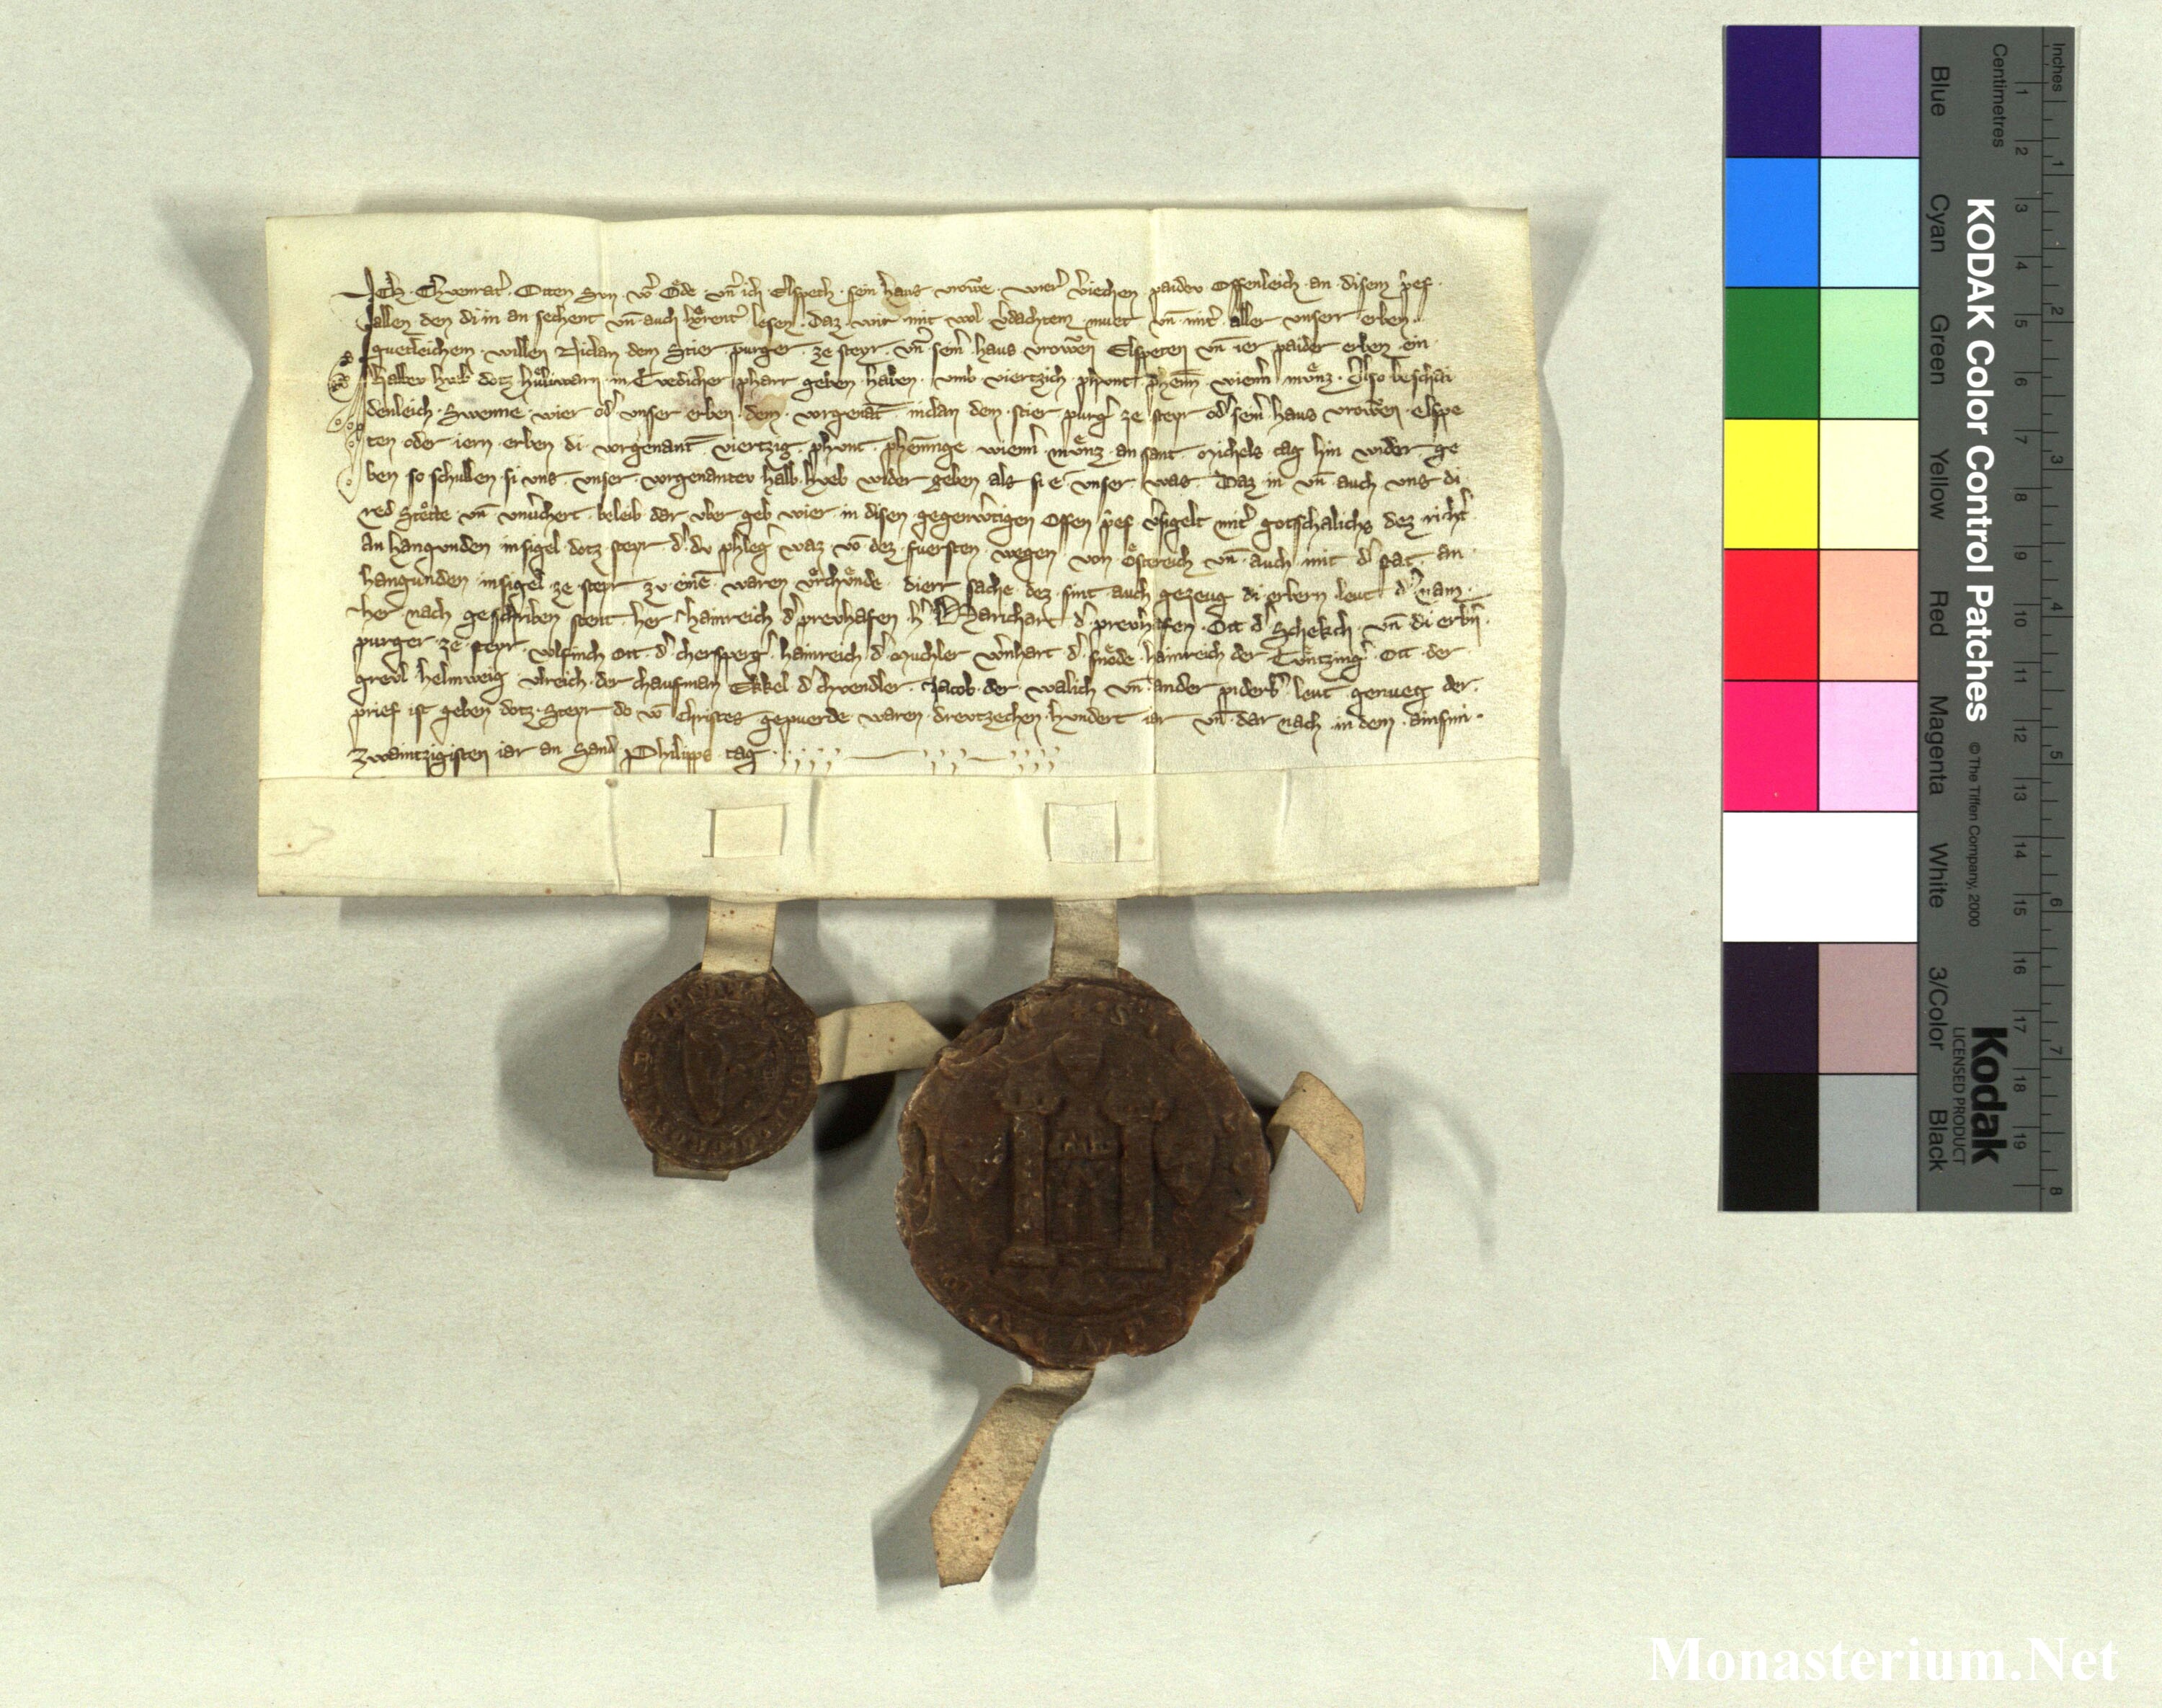 Ich Chvnrat Otten Svn võ Öde vñ ich Elspeth sein haus vrowe wier v̓iechen paidev Offenleich an disem p̓ef
allen den di in an sechent vñ auch hörent lesen daz wir mit wol v̓dachtem muet vñ mit aller unserr erben
guetleichem willen Niclan dem Stier purger ze steyr vñ seiñ haus vrowen Elspeten vñ ier paider erben ein
halbev hub dotz in pharr geben haben umb viertzich phunt pheñ wienñ münz Also beschai
denleich Swenne wier od̓ unser erben dem vorgenãt niclan dem stier purg̓ ze steyr od̓ seiñ haus vrowen elspe
ten oder iern erben di vorgenant viertzig phunt phenninge wienñ münz an sant Michels tag hin wider ge
ben so schullen si uns unser vorgenantev halb hueb wider geben als si e unser was Daz in vñ auch uns di
red stëtte vñ unv̓chert beleib dar vber geb wier in disen gegenwrtigen offen p̓ef v̓sigelt mit gotschalichs dez richt̓
an hangunden insigel dotz steyr d̓ do phleg̓ waz võ dez fuersten wegen von österreich vñ auch mit d̓ stat an
hangunden insigel ze steyr zv einẽ waren vrchünde dierr sache dez sint auch gezeug di erbern leut d̓ nam
her nach geschriben stent her hainreich d̓ prevhafen h̓ Marichart d̓ prevhafen Ott d̓ Schekch vñ di erbñ
purger ze steyr Wlfinch ott d̓ chersperg̓ hainreich d̓ Muchler wernhart d̓ snöde hainreich der Ott der
grevl helmweig Vlreich der chaufman Ekkel d̓ chvendler Jacob der walich vñ ander piderb̓ leut genueg der
prief ist geben dotz Steyr do võ Christes gepuerde waren drevtzechen hundert iar vñ dar nach in dem ainsm
zwaintzigisten iar an Sand Philipps tag
KODAK Color Control Patches © The Tiffen Company, 2000 Kodak
LICENSED PRODUCT
Blue Cyan Green Yellow Red Magenta White 3/Color Black
Centimetres 1 2 3 4 5 6 7 8 9 10 11 12 13 14 15 16 17 18 19
Inches 1 2 3 4 5 6 7 8
Monasterium.Net